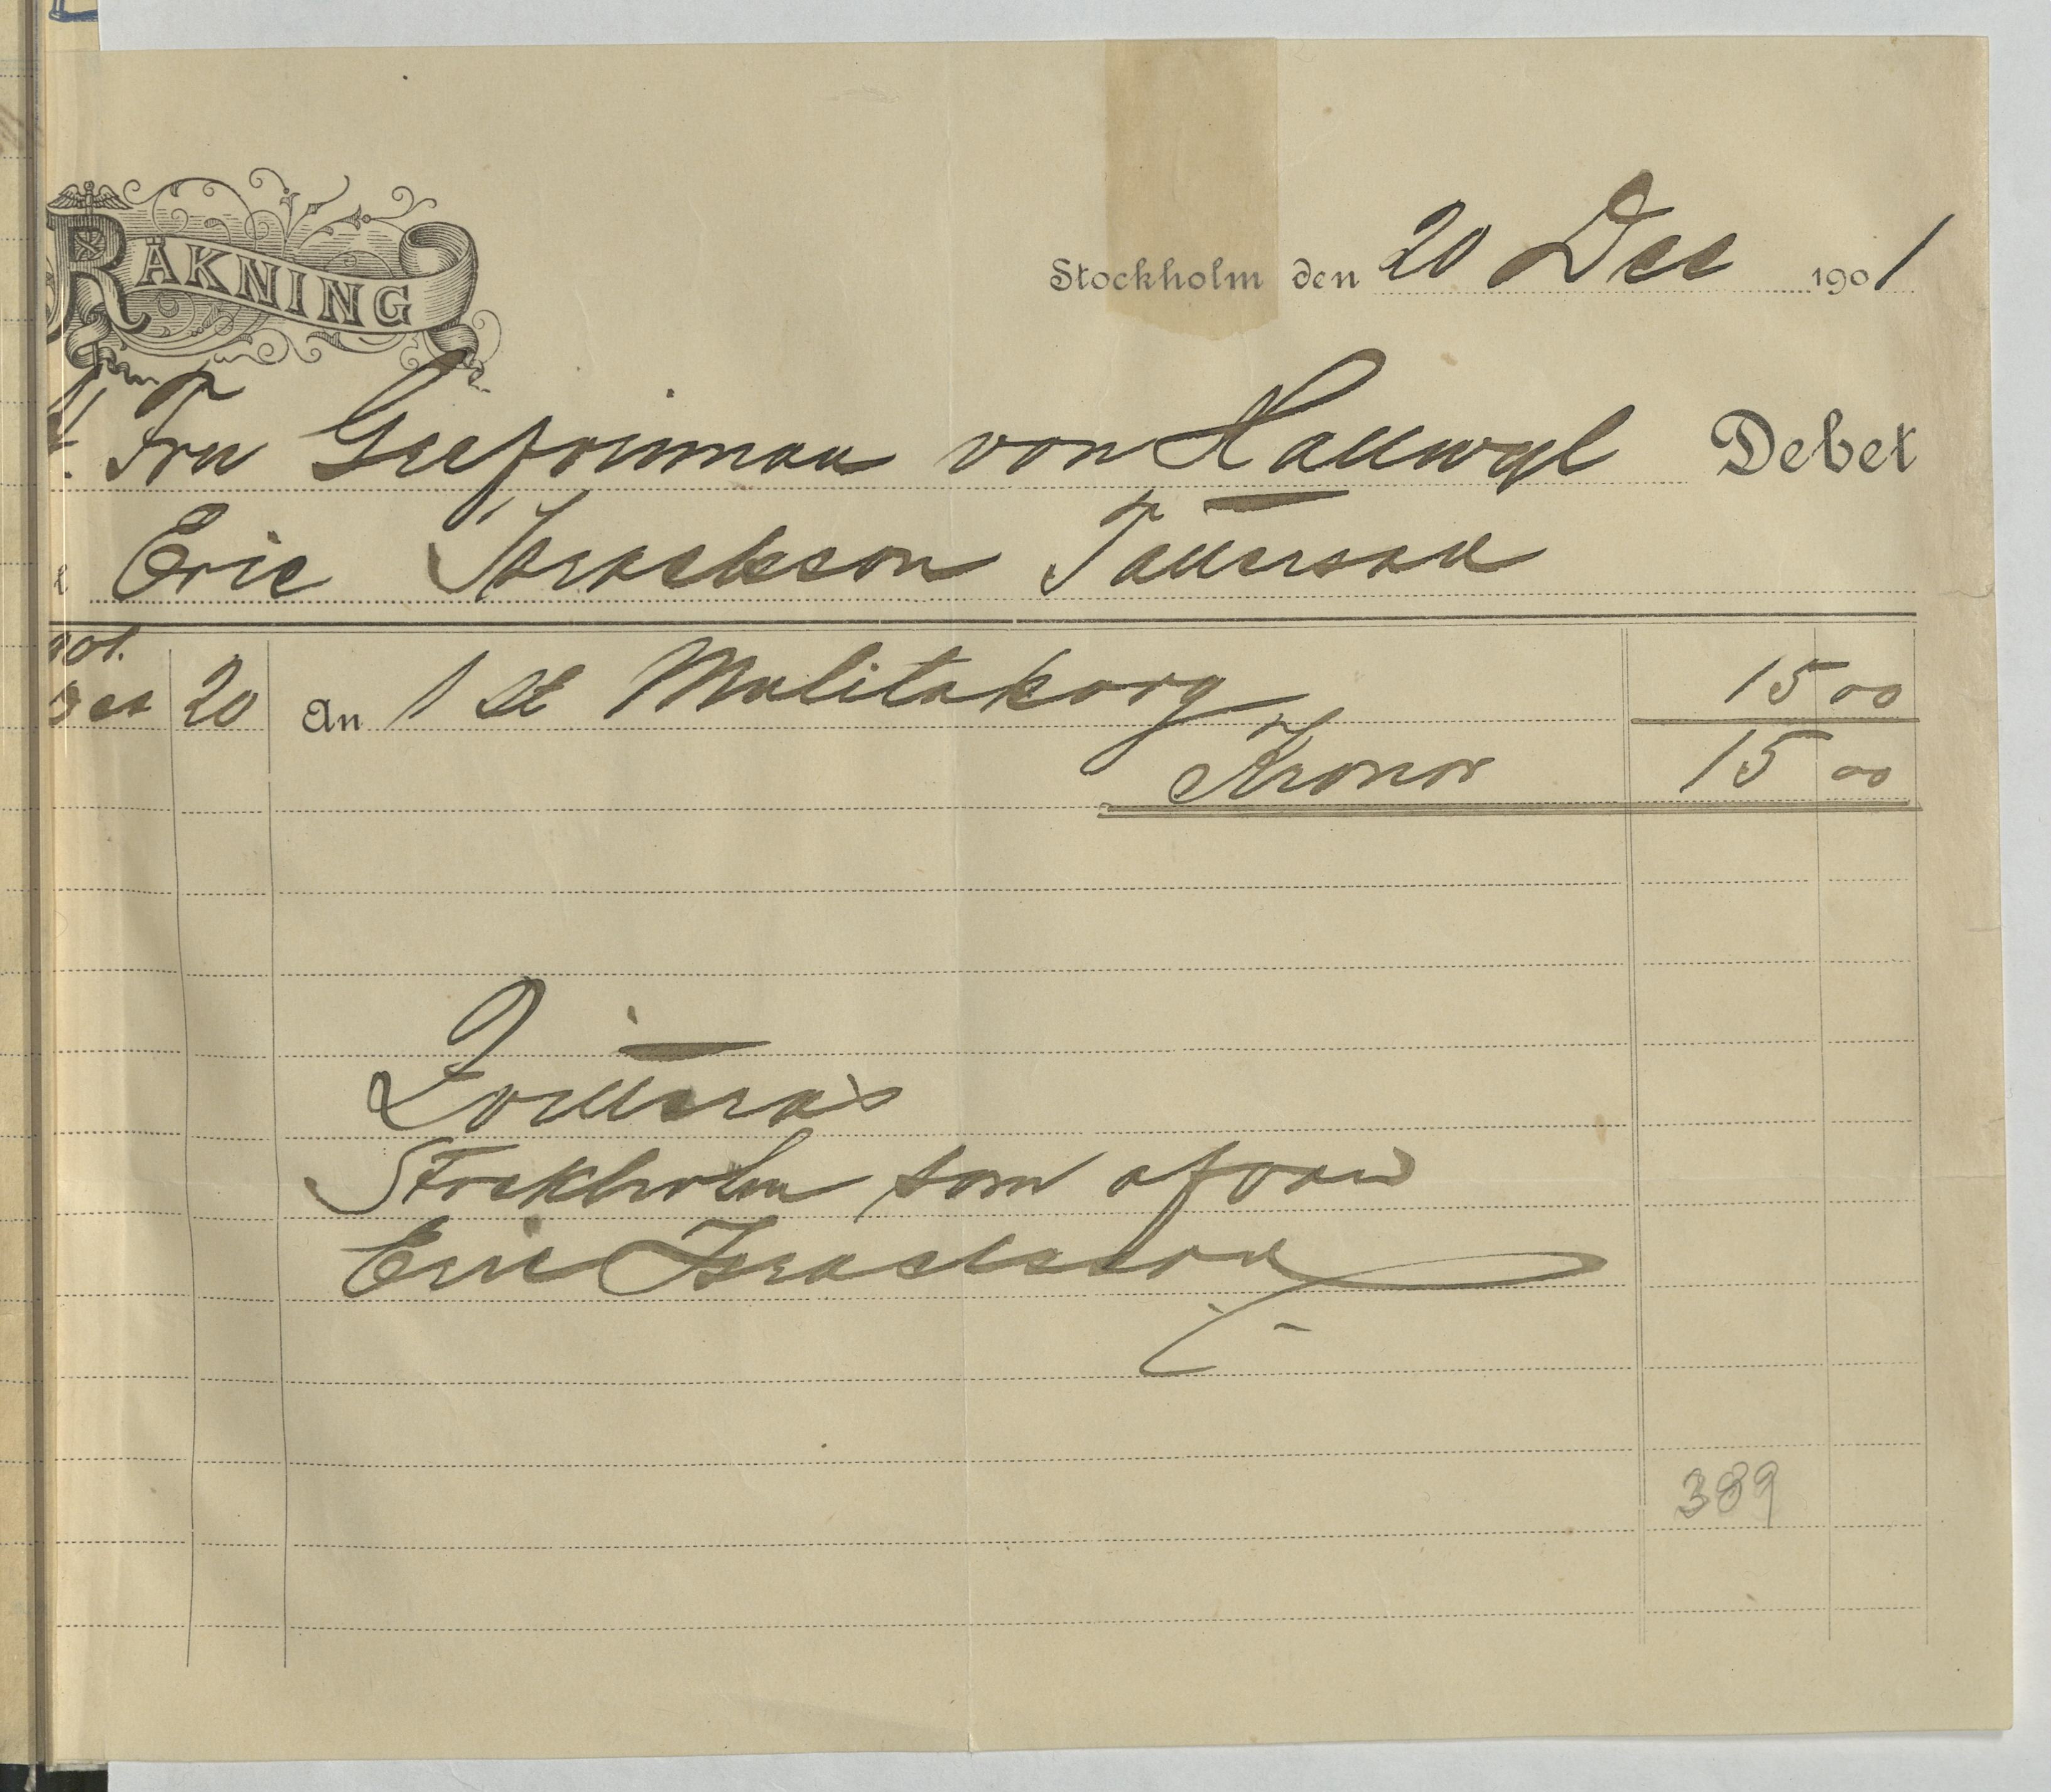 RÄKNING
Stockholm den 20 Dec 1901
Fru Grefvinnan von Hallwyl Debet
Eric Israelsson Tattersall
901.
Dec 20 An 1 St 15 00
Kronor 15 00
Qvitteras
Stockholm som ofvan
Eric Israelsson
389